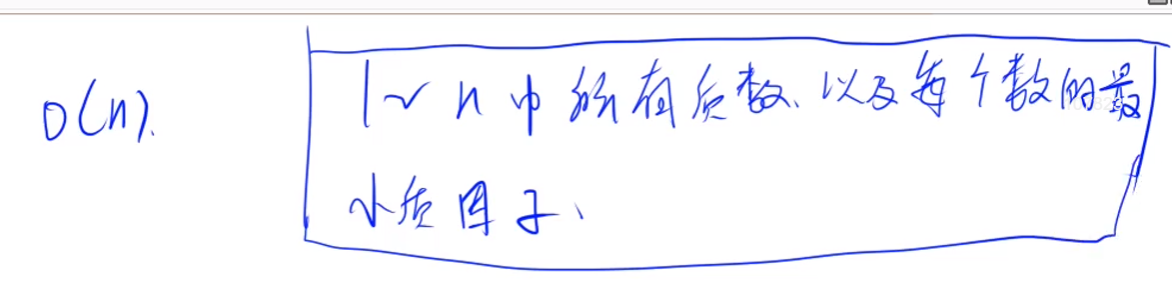 O(n).
1~n中所有质数、以及每个数的最
小质因子、